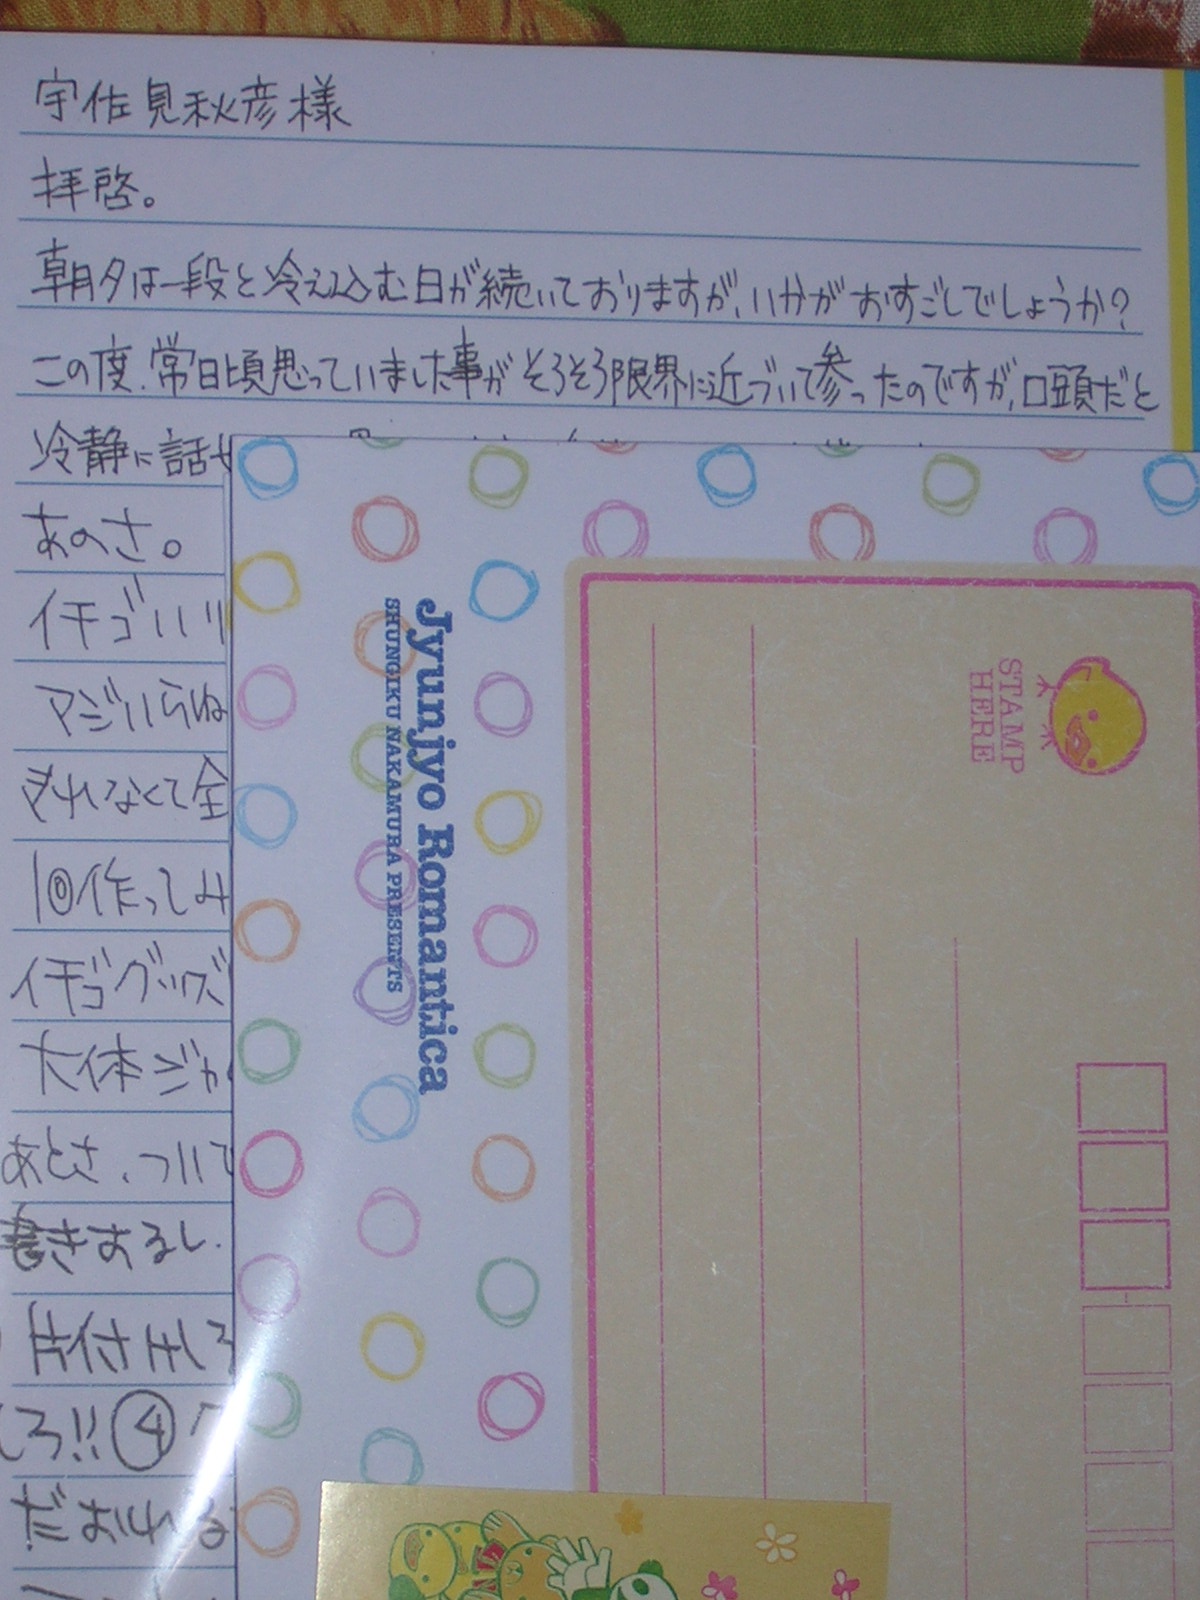 宇佐見秋彦様
拝啓。
朝夕は一段と冷え込む日が続いておりますが、いかがおすごしでしょうか?
この度、常日頃思っていました事がそろそろ限界に近づいて参ったのですが、口頭だと
冷静に話せ
あのさ。
イチゴいい
マジいらね
きれなくて全
作ってみ
イチゴグッズ
大体ジャ
あとさ、ついて
書きするし、
片付けしろ
しろ!!④
だおれる
Jyunjyo Romantica
SHUNGIKU NAKAMURA PRESENTS
STAMP
HERE